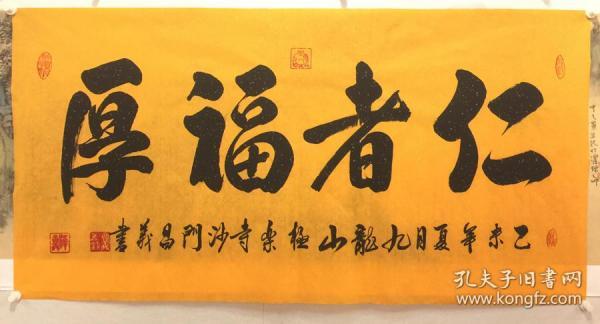 仁者福厚
乙未年夏月九龙山极乐寺沙门昌义书
孔夫子旧书网
www.kongfz.com